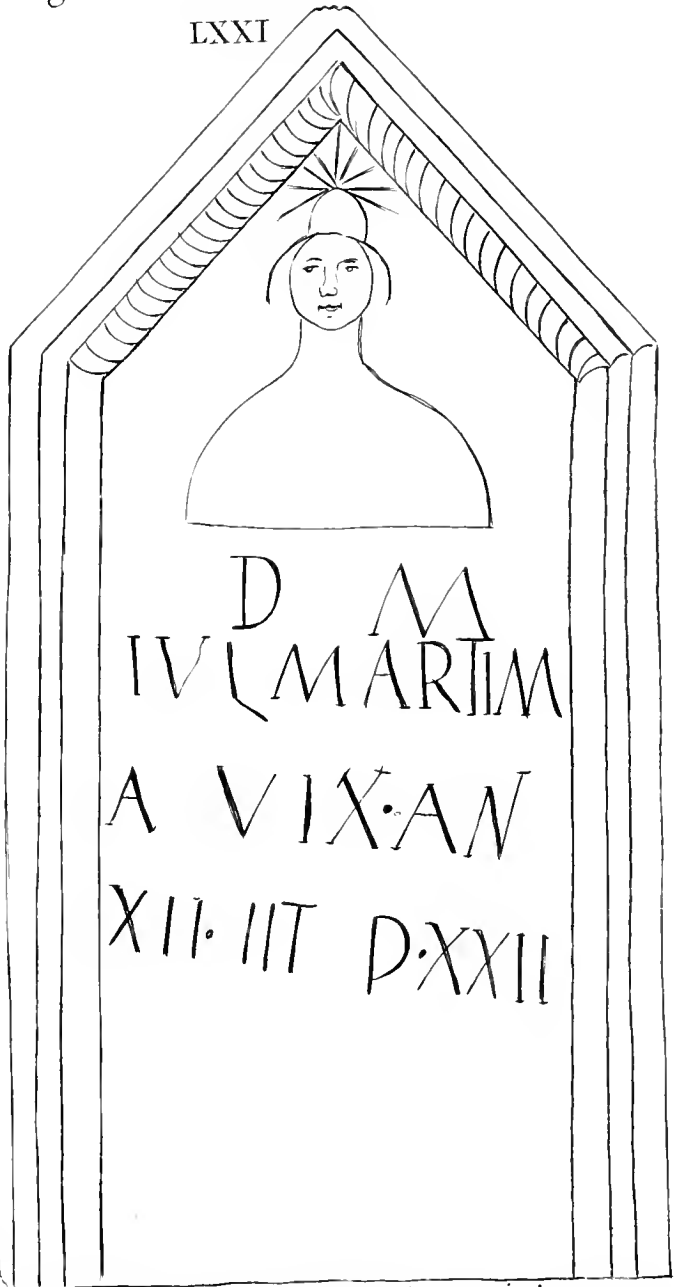 LXXI
D M
IVL MARTIM
A VIX·AN
XII· IIT D·XXII